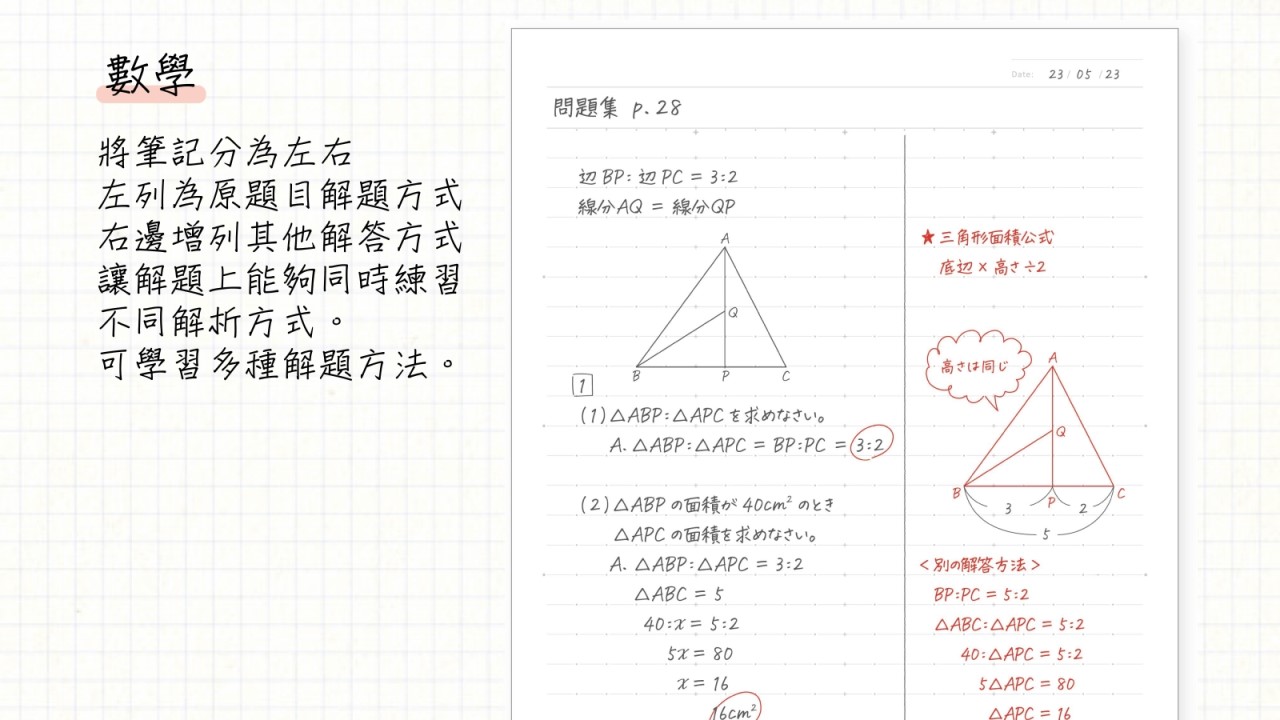 數學
將筆記分為左右
左列為原題目解題方式
右邊增列其他解答方式
讓解題上能夠同時練習
不同解析方式。
可學習多種解題方法。
Date: 23 / 05 / 23
問題集 p.28
辺BP:辺PC = 3:2
線分AQ = 線分QP
A
Q
B P C
1
(1)△ABP:△APCを求めなさい。
A. △ABP:△APC = BP:PC = 3:2
(2)△ABPの面積が40cm²のとき
△APCの面積を求めなさい。
A. △ABP:△APC = 3:2
△ABC = 5
40:x = 5:2
5x = 80
x = 16
16cm²
★三角形面積公式
底辺×高さ÷2
高さは同じ
A
Q
B P C
3 2
5
<別の解答方法>
BP:PC = 5:2
△ABC:△APC = 5:2
40:△APC = 5:2
5△APC = 80
△APC = 16